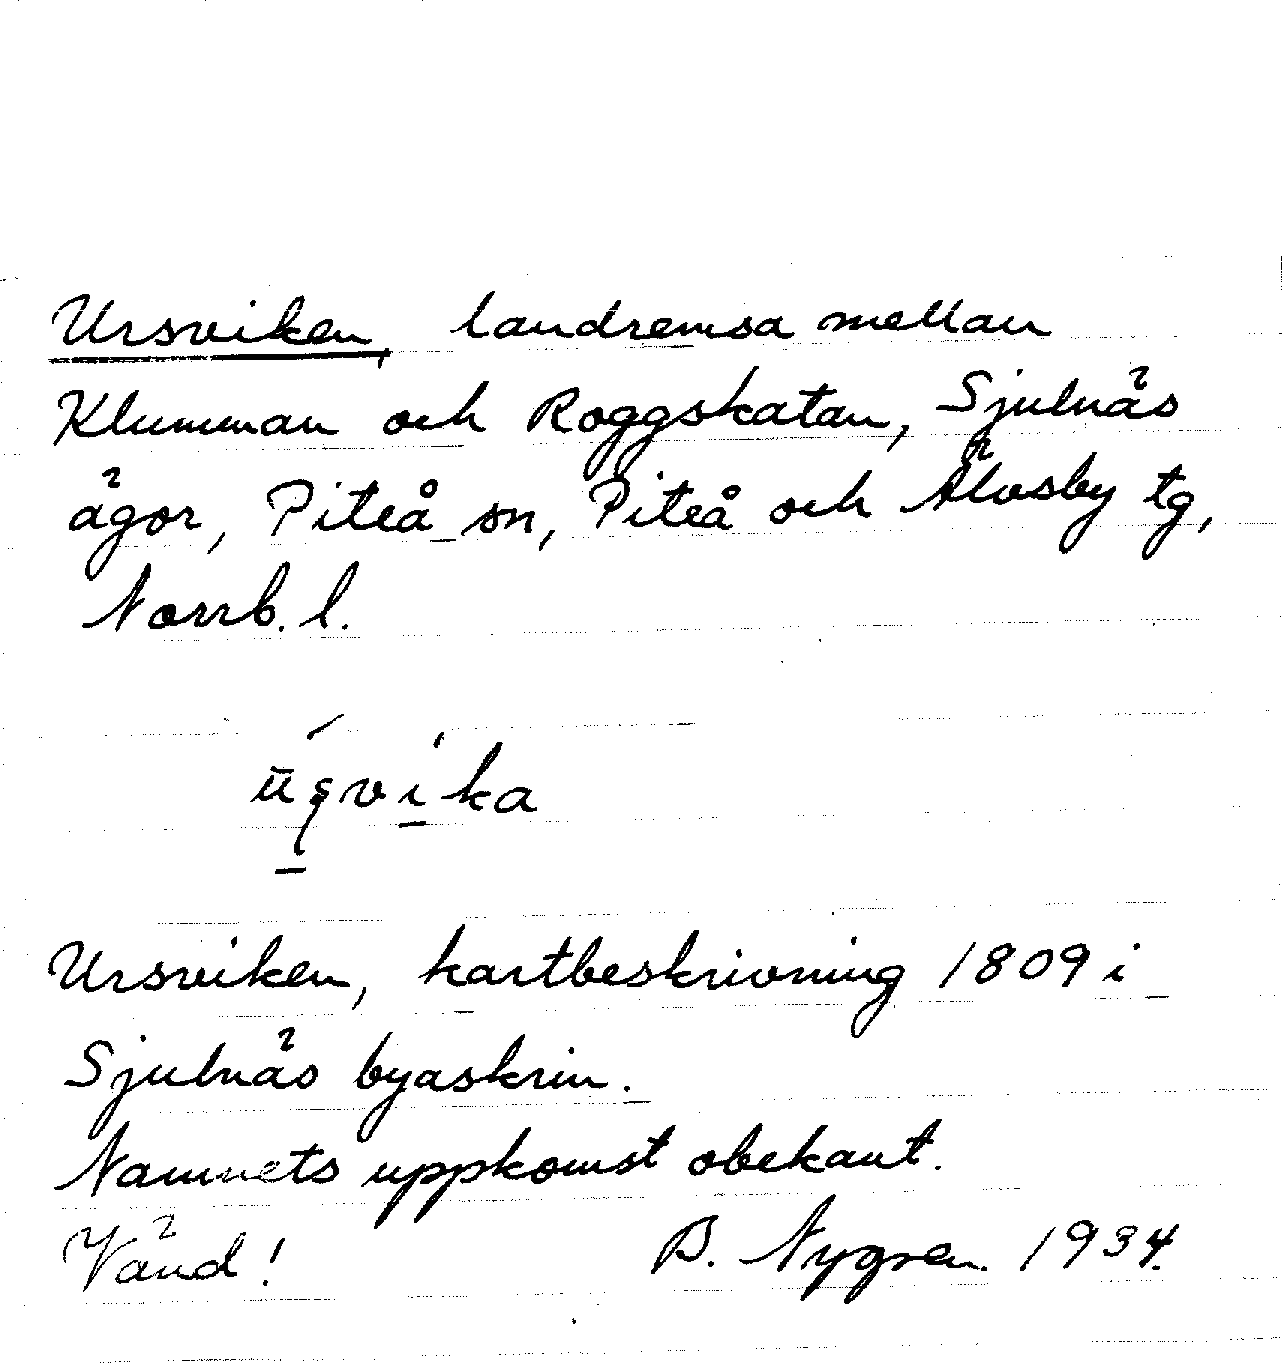 Ursviken, landremsa mellan
Klumman och Roggskatan, Sjulnäs
ägor, Piteå sn, Piteå och Älvsby tg,
Norrb. l.
Ursviken, kartbeskrivning 1809 i
Sjulnäs byaskrin.
Namnets uppkomst obekant.
Vänd! B. Nygren 1934.